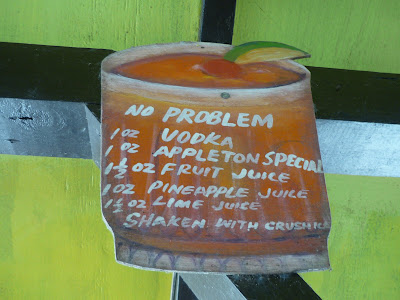 NO PROBLEM
1 OZ VODKA
1 OZ APPLETON SPECIAL
1 1/2 OZ FRUIT JUICE
1 OZ PINEAPPLE JUICE
1 1/2 OZ LIME JUICE
SHAKEN WITH CRUSH ICE